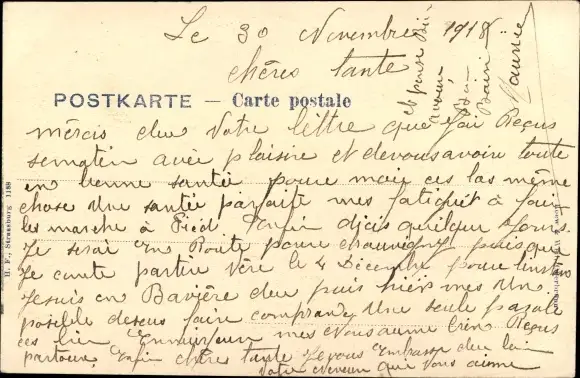 Le 30 Novembre 1918
chères tante
POSTKARTE — Carte postale
mercis deu votre lettre que jai Reçus
se matin avèc plaisire et devous avoir toute
en bonne santée pour moi ces las même
chose une santée parfaite mes fatiguét à fair
les marche à Pied enfin djcis quelque jours
Je serai en Route poure puisque
Je conte partire vère le 4 Décembre poure linstan
Je suis en Bavière deu puis hière mes un
posible deseus faire comprendre une seule parole
ces bien Ennuyeux mes vous aume bien Reçus
partoue, Enfin chères tante Je vous Embrasse deu loin
votre neveux que vous aime
Maurice
et
Bon
Baisé
H. F., Strassburg 1188